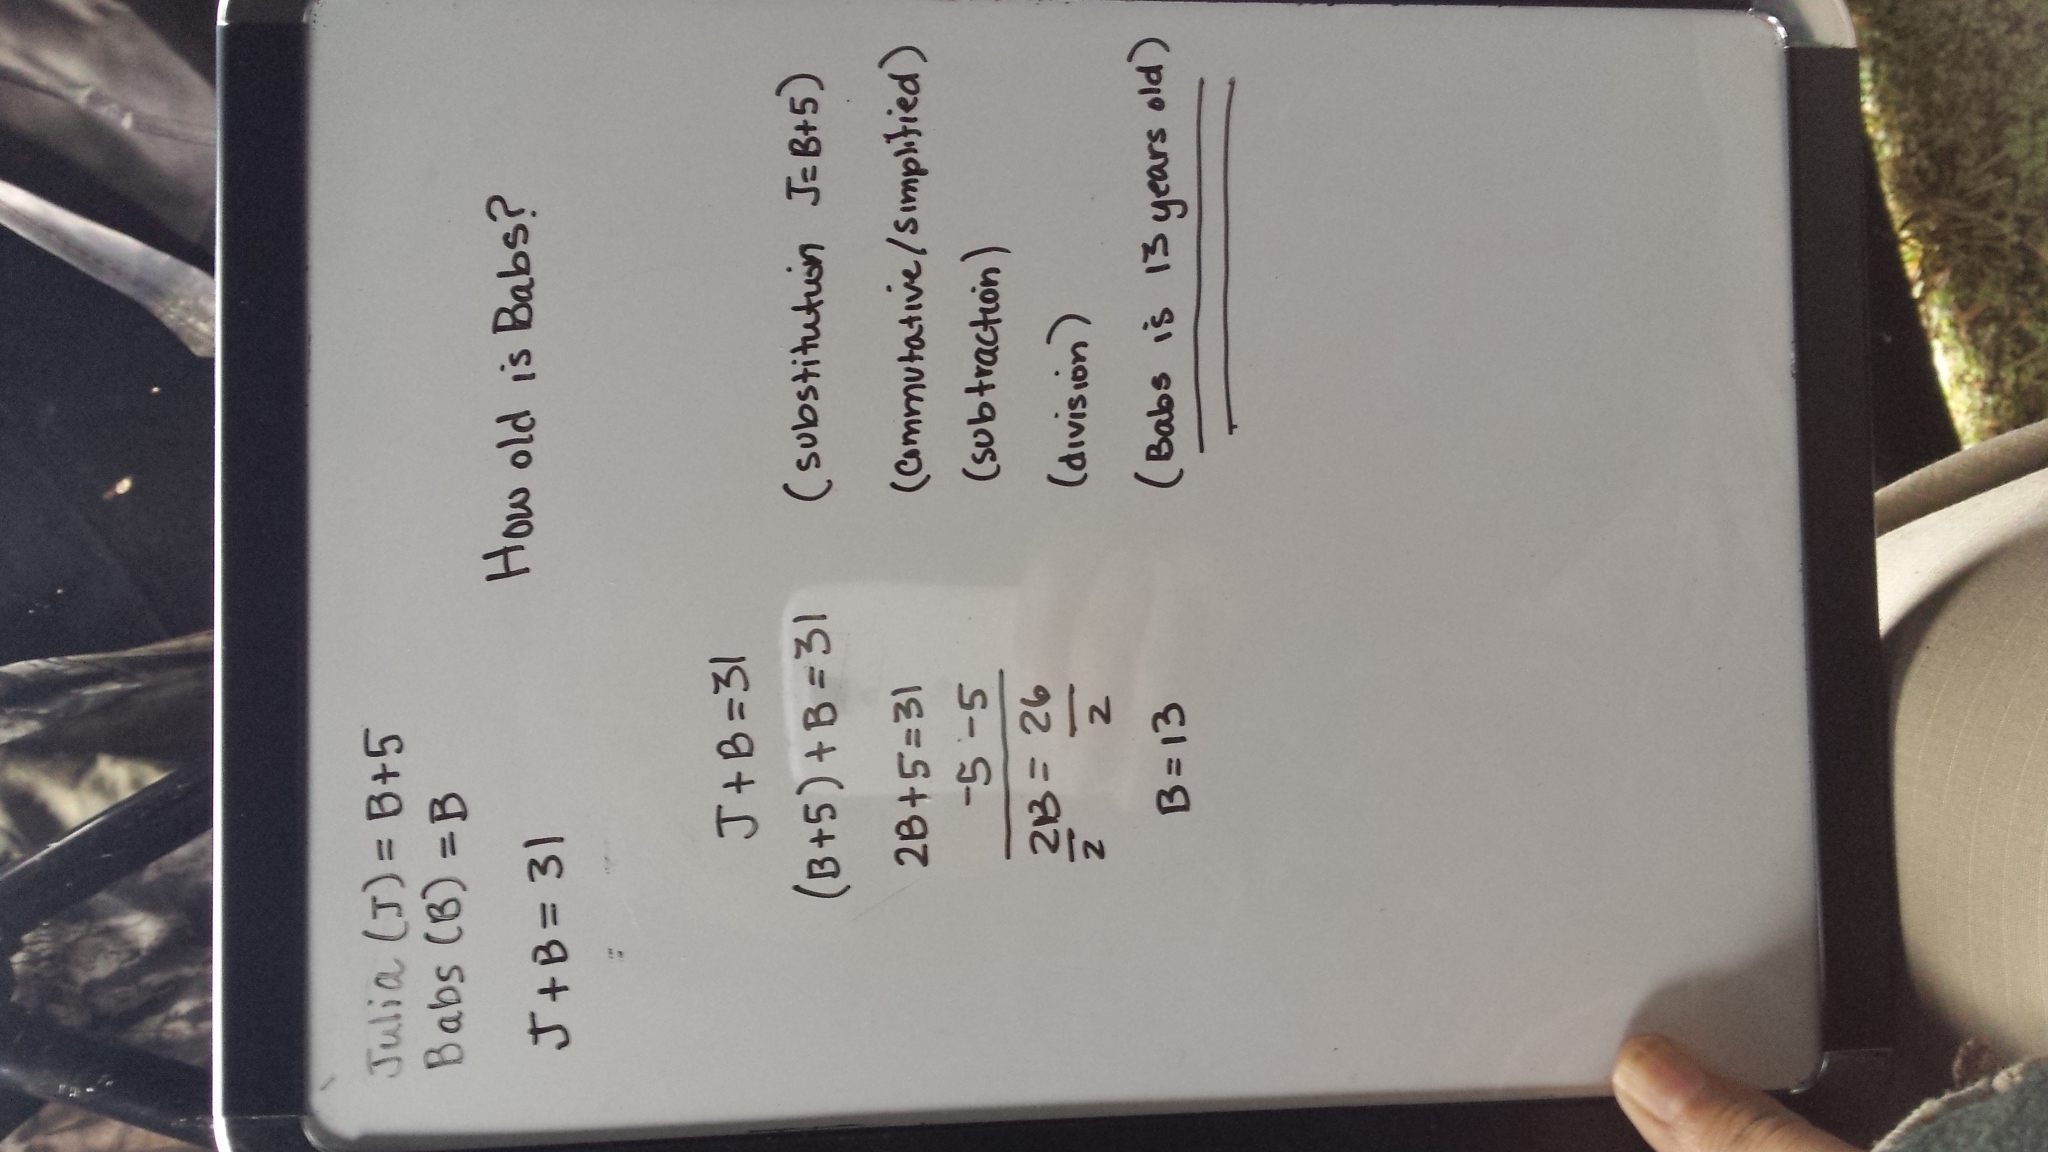 Julia (J) = B+5
Babs (B) = B
How old is Babs?
J + B = 31
J + B = 31
(B+5) + B = 31 (substitution J=B+5)
2B + 5 = 31 (commutative/simplified)
-5 -5 (subtraction)
2B = 26
2 2 (division)
B = 13 (Babs is 13 years old)